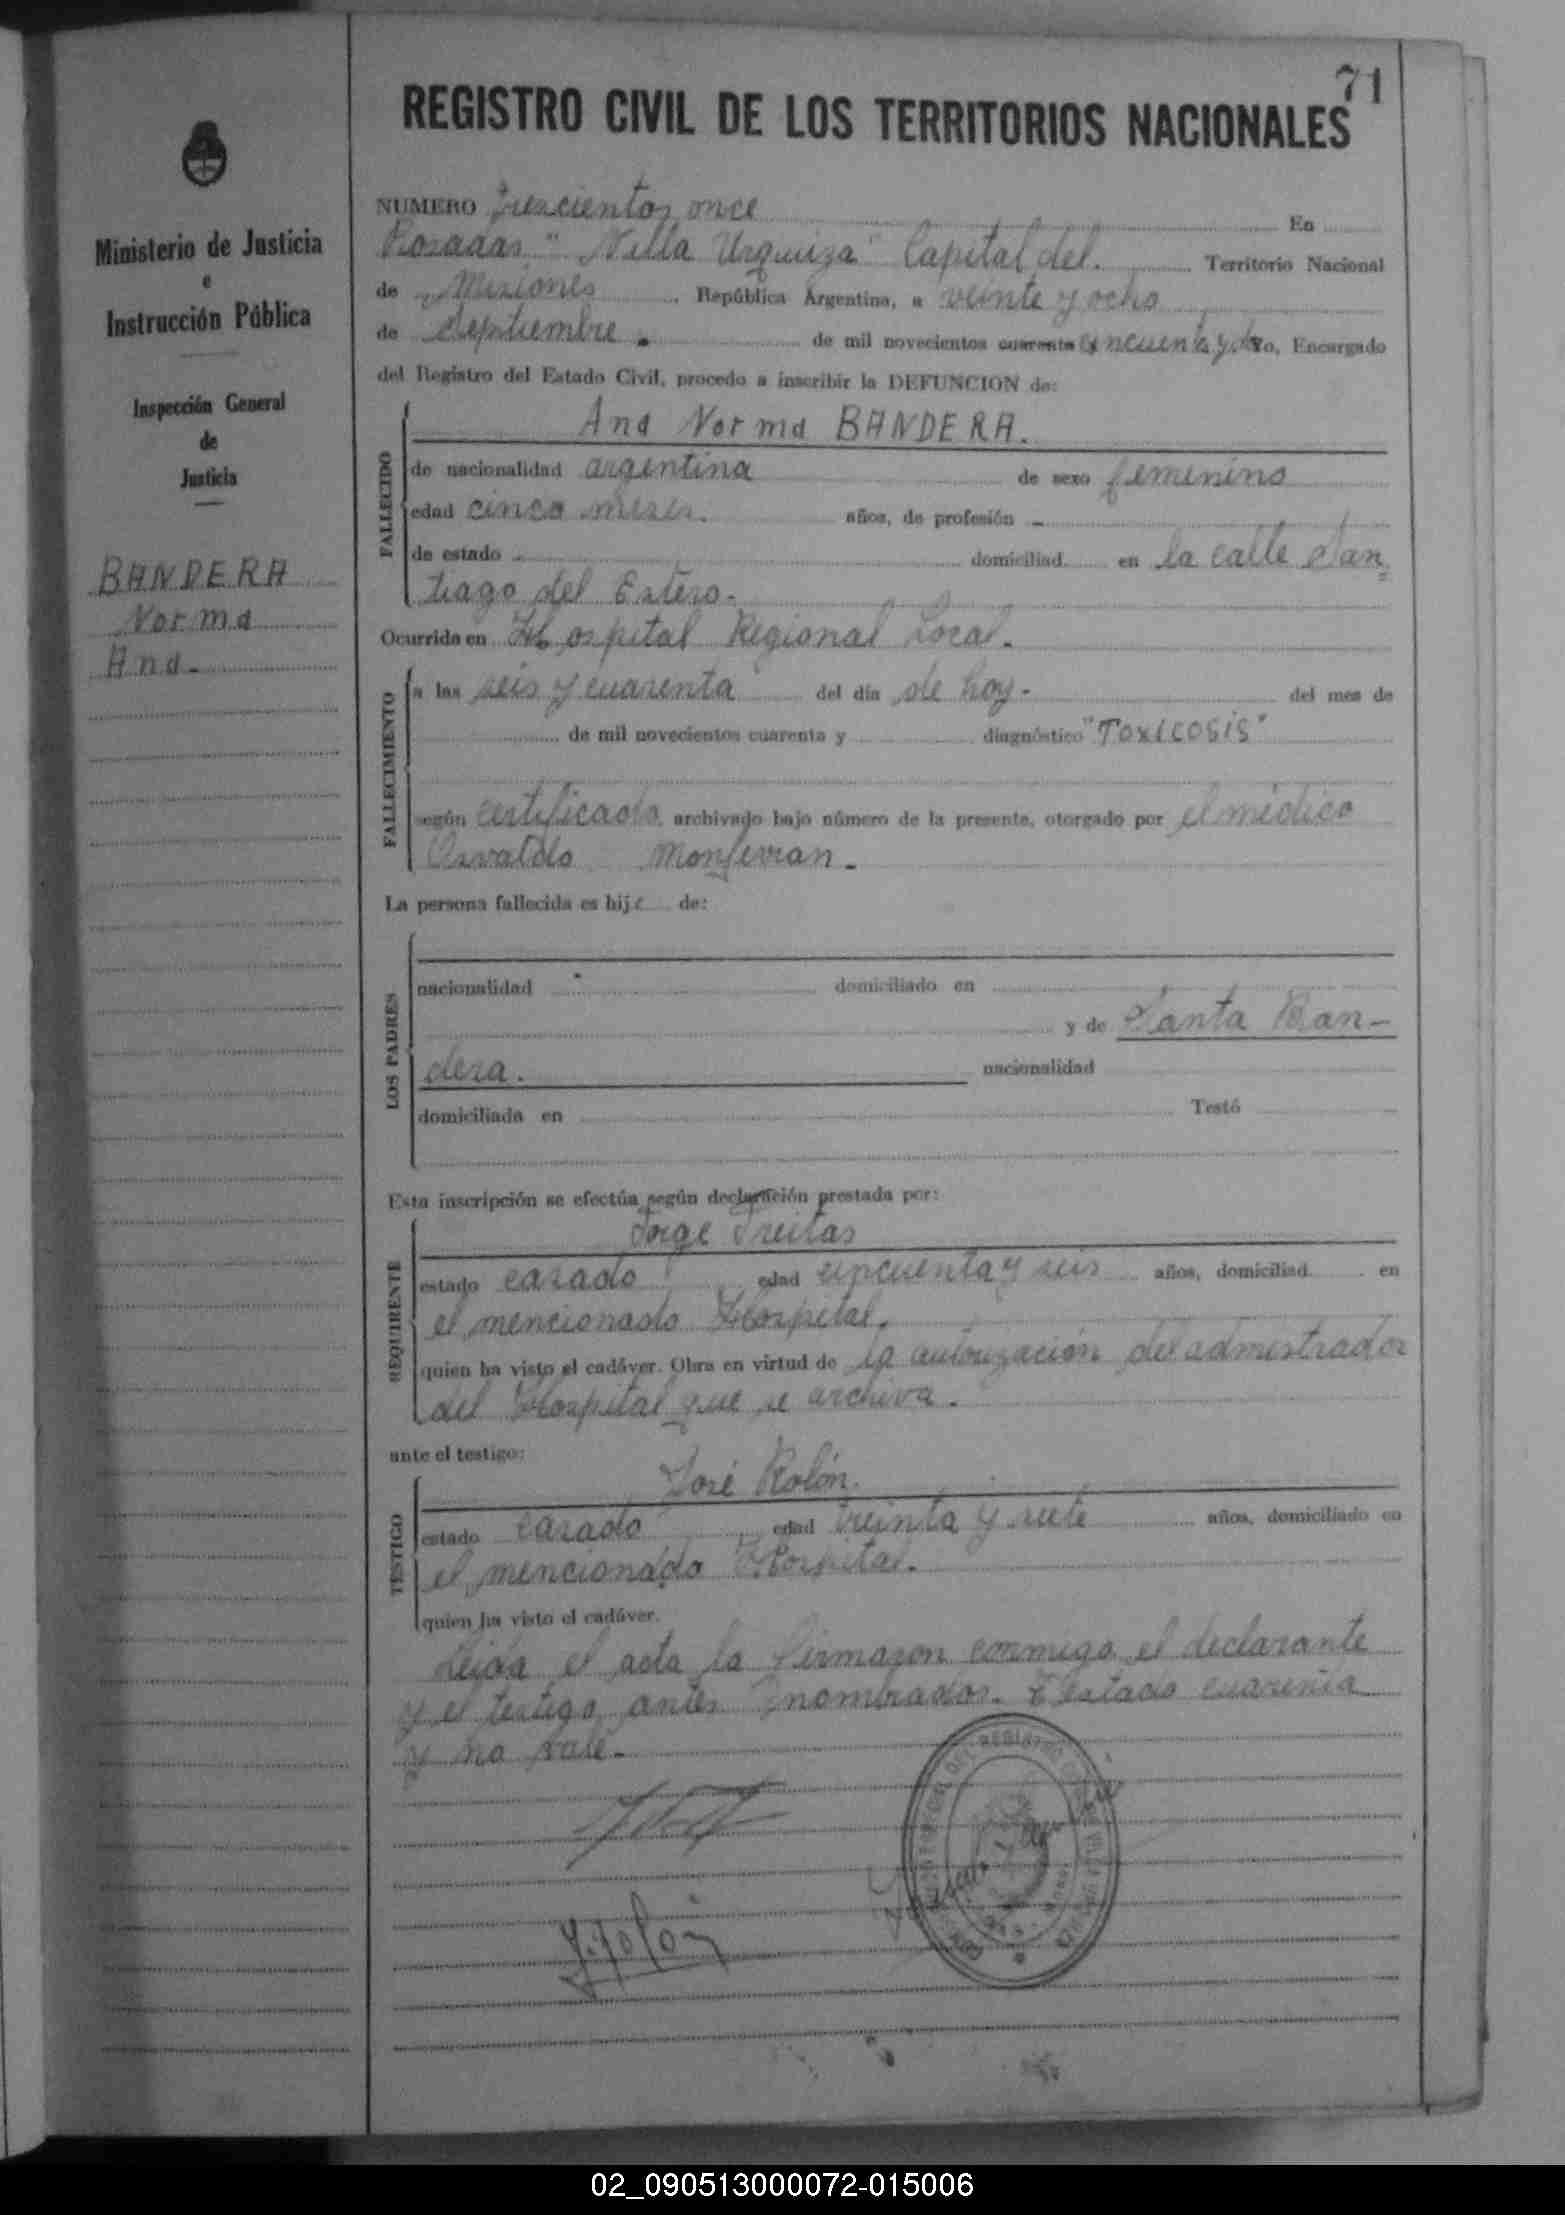 71
REGISTRO CIVIL DE LOS TERRITORIOS NACIONALES
Ministerio de Justicia
e
Instrucción Pública
Inspección General
de
Justicia
BANDERA
Norma
Ana.-
NUMERO trescientos once En
Posadas "Villa Urquiza" Capital del. Territorio Nacional
de Misiones República Argentina, a veinte y ocho
de Septiembre. de mil novecientos cuarenta cincuenta y Yo, Encargado
del Registro del Estado Civil, procedo a inscribir la DEFUNCION de:
Ana Norma BANDERA.
FALLECIDO
de nacionalidad argentina de sexo femenino
edad cinco meses. años, de profesión -
de estado domiciliad en la calle San
tiago del Estero.
Ocurrida en Hospital Regional Local.
FALLECIMIENTO
a las seis y cuarenta del día de hoy. del mes de
de mil novecientos cuarenta y diagnóstico "TOXICOSIS"
según certificado archivado bajo número de la presente, otorgado por el médico
Osvaldo
La persona fallecida es hij de:
LOS PADRES
nacionalidad domiciliado en
y de Santa Ban-
dera. nacionalidad
domiciliada en Testó
Esta inscripción se efectúa según declaración prestada por:
Jorge Freitas
REQUIRENTE
estado casado edad cincuenta y seis años, domiciliad en
el mencionado Hospital.
quien ha visto el cadáver. Obra en virtud de la autorización del admistrador
del Hospital que se archiva.
ante el testigo:
José Rolón.
TESTIGO
estado casado edad treinta y siete años, domiciliado en
el mencionado Hospital.
quien ha visto el cadáver.
Leida el acta la firmaron conmigo el declarante
y el testigo antes nombrados. Testado cuarenta
y no vale.
J. Rolon
02_090513000072-015006